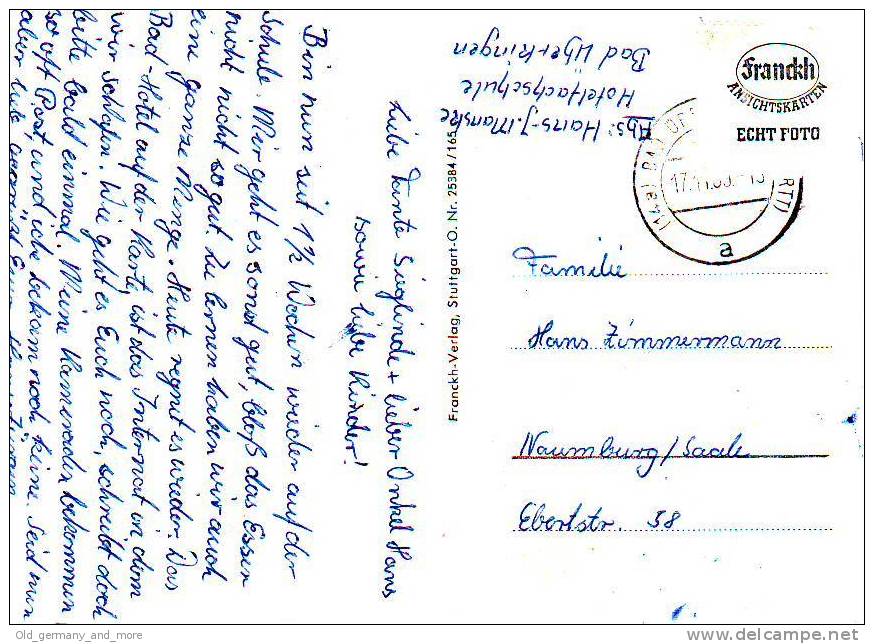 Liebe Tante Sieglinde + lieber Onkel Hans
sowie liebe Kinder!
Bin nun seit 1½ Wochen wieder auf der
Schule. Mir geht es sonst gut, bloß das Essen
nicht so gut. Zu lernen haben wir auch
eine ganze Menge. Heute regnet es wieder. Das
Bad-Hotel auf der Karte ist das Internat in dem
wir schlafen. Wie geht es Euch noch, schreibt doch
bitte bald einmal. Meine Kameraden bekommen
so oft Post, und ich bekam noch keine. Seid nun
aber
Franckh-Verlag, Stuttgart-O. Nr. 25384/165
Abs: Hans-J. Manske
Hotelfachschule
Bad Überkingen
Franckh
ANSICHTSKARTEN
ECHT FOTO
(14a) BAD
RTT)
a
Familie
Hans Zimmermann
Naumburg/Saale
Ebertstr. 38
Old_germany_and_more
www.delcampe.net